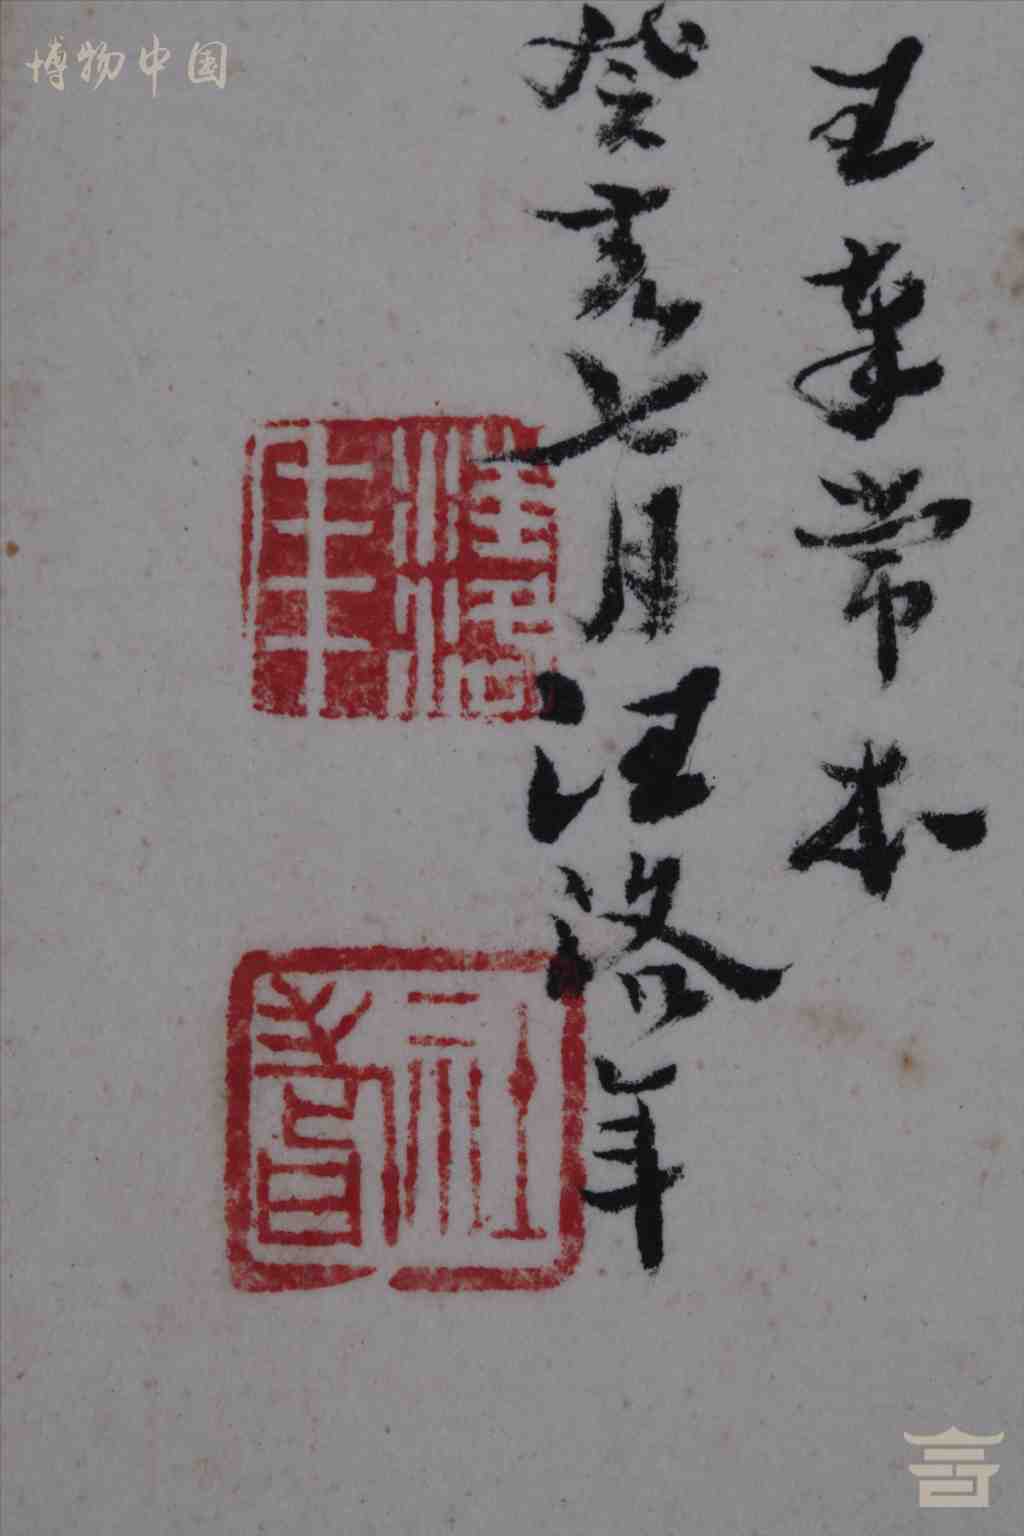 博物中国
王奉常本
癸亥七月汪洛年
汪洛年
社耆